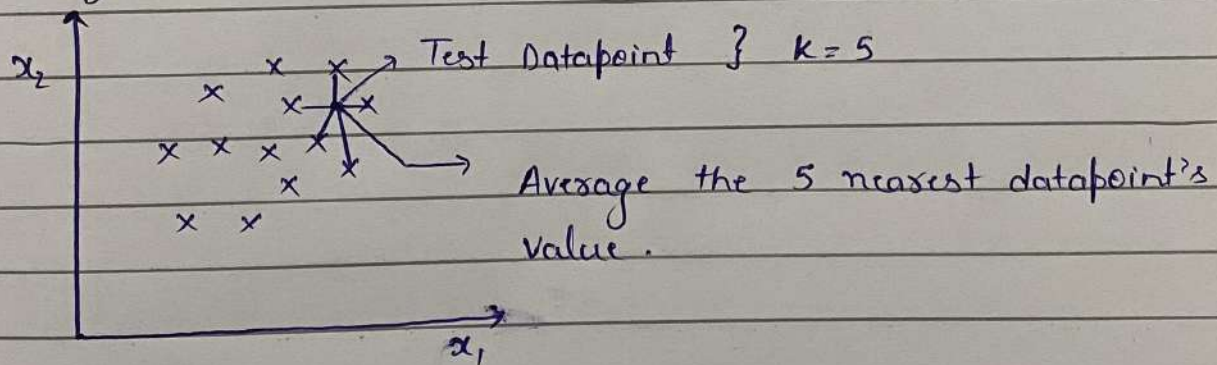 x₂
Test Datapoint } K = 5
Average the 5 nearest datapoint's
value.
x₁